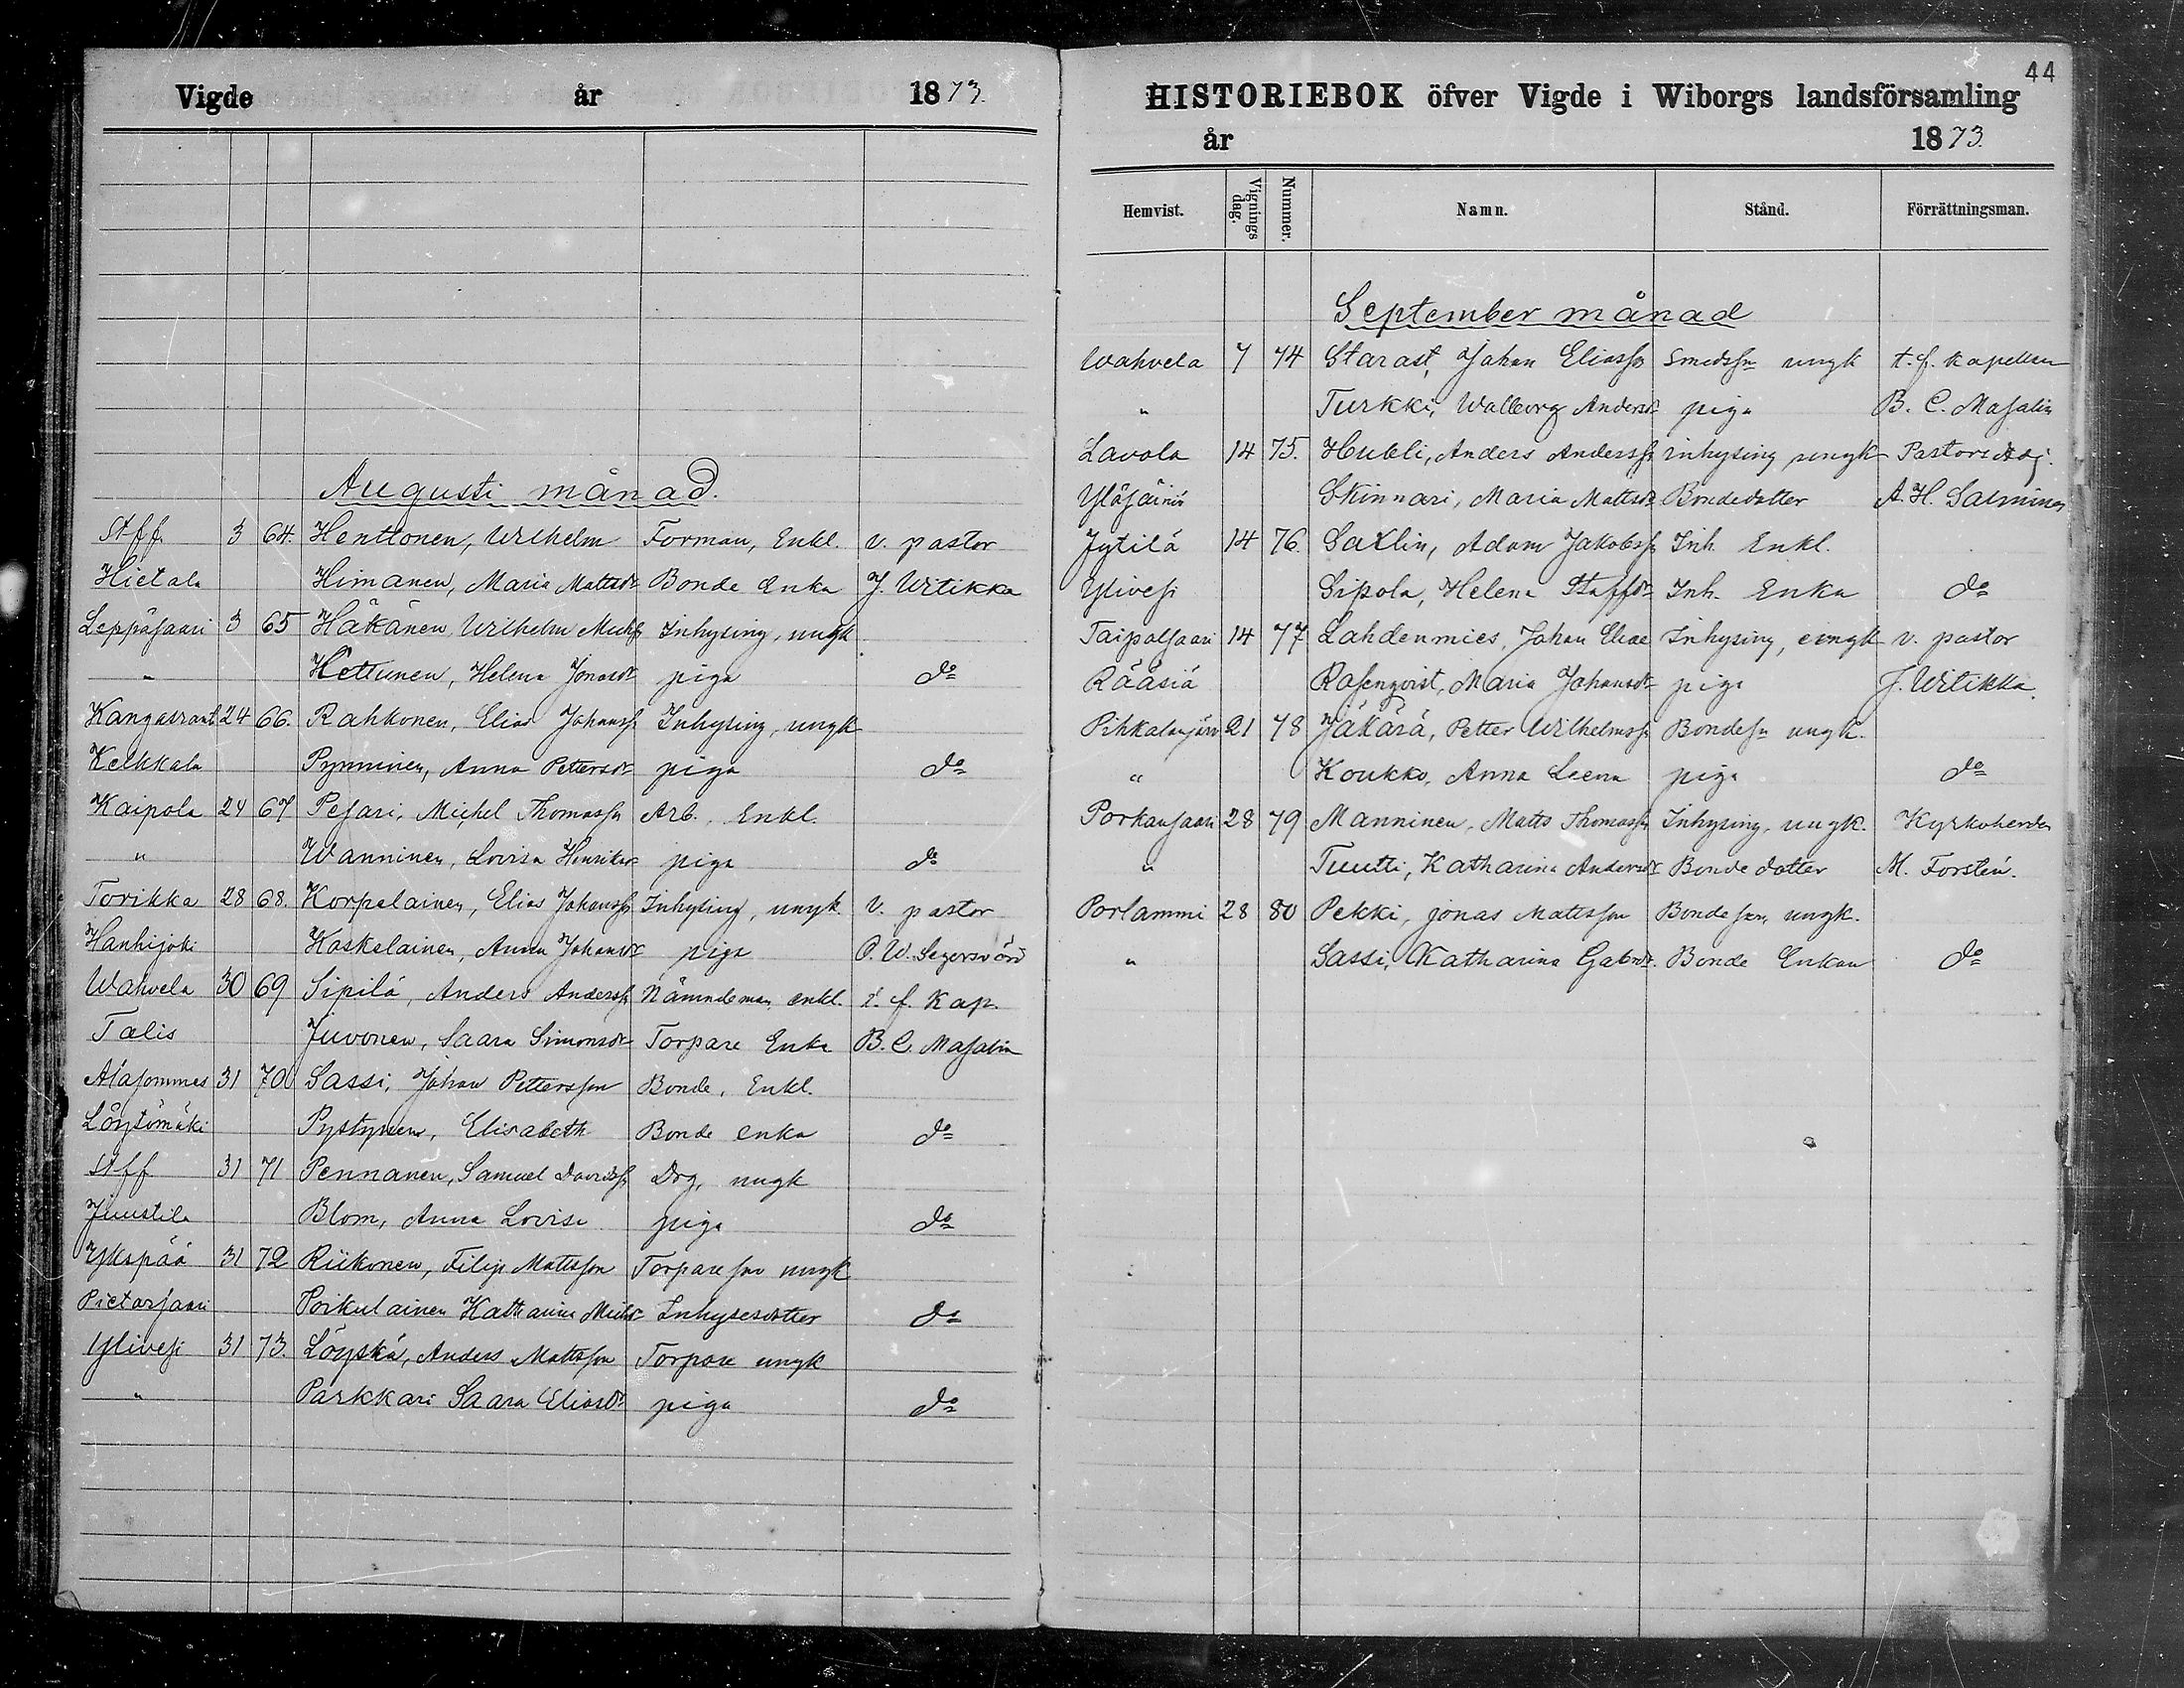 Vigde år 1873.
Augusti månad.
St ff. 3 64. Henttonen, Wilhelm Forman, Enkl. v. pastor
Hietala Himanen, Maria Mattsdr Bonde Enka J. Witikka
Leppäsaari 3 65 Häkänen, Wilhelm Michss Inhysing, ungk
" Hettunen, Helena Jonasdr piga do
Kangasrant 24 66. Rahkonen, Elias Johanss Inhysing, ungk
Kelkkala Pynninen, Anna Pettersdr piga do
Kaipola 24 67 Pesari, Michel Thomassn Arb., Enkl.
" Wanninen, Lovisa Henriksdr piga do
Torikka 28 68. Korpelainen, Elias Johanss Inhysing, ungk v. pastor
Hanhijoki Koskelainen, Anna Johansdr piga O. W. Segersvärd
Wahvela 30 69 Sipilä, Anders Anderss Nämndeman, enkl. t. f. Kap.
Talis Juvonen, Saara Simonsdr Torpare Enka B. C. Masalin
Alasommes 31 70 Sassi, Johan Petterssson Bonde, Enkl.
Löytömäki Pystynen, Elisabeth Bonde enka do
St ff 31 71 Pennanen, Samuel Davidss Drg, ungk
Juustila Blom, Anna Lovisa piga do
Ykspää 31 72 Riikonen, Filip Mattsson Torpare son ungk
Pietarsaari Poikulainen Katharina Michdr Inhysesdotter do
Ylivesi 31 73. Löyskä, Anders Mattsson Torpare ungk
" Parkkari Saara Eliasdr piga do
44
HISTORIEBOK öfver Vigde i Wiborgs landsförsamling
år 1873.
Hemvist. Vignings dag. Nummer. Namn. Stånd. Förrättningsman.
September månad
Wahvela 7 74 Starast, Johan Eliassn Smedssn ungk t. f. kapellan
" Turkki, Walborg Andersdr piga B. C. Masalin
Lavola 14 75. Hubli, Anders Anderss inhysing ungk Pastors Adj.
Yläsäiniö Skinnari, Maria Mattsdr Bondedotter A. H. Salminen
Jytilä 14 76. Saxlin, Adam Jakobss Inh. Enkl.
Ylivesi Sipola, Helena Staffdr Inh. Enka do
Taipalsaari 14 77 Lahdenmies, Johan Eliae Inhysing, ungk v. pastor
Rääsiä Rosenqvist, Maria Johansdr piga J. Witikka.
Pihkalanjärvi 21 78 Jäkärä, Petter Wilhelmss Bondesn ungk.
" Koukko, Anna Leena piga do
Porkansaari 28 79 Manninen, Matts Thomassn Inhysing, ungk. Kyrkoherden
" Tuutti, Katharina Andersdr Bonde dotter M. Forstén.
Porlammi 28 80 Pekki, Jonas Mattsson Bonde son, ungk.
" Sassi, Katharina Gabrdr. Bonde Enkan do